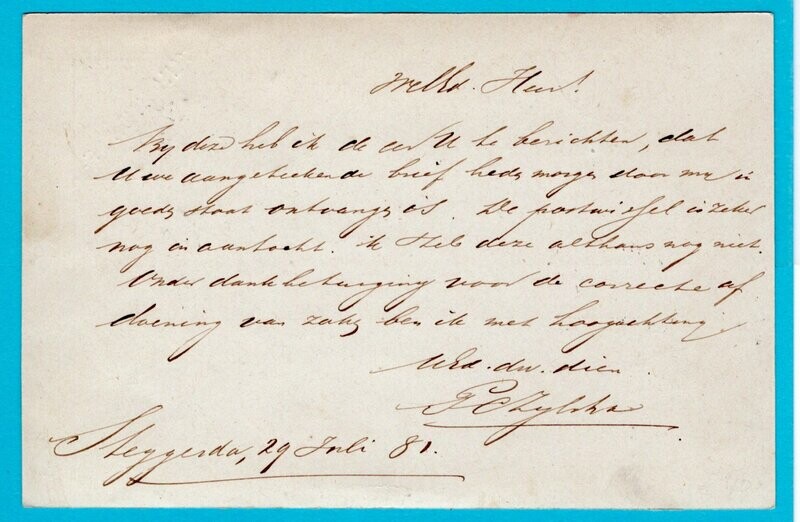 WelEd. Heer!
Bij deze heb ik de eer U te berichten, dat
Uwe aangeteekende brief heden morgen door my in
goeden staat ontvangen is. De postwissel is zeker
nog in aantocht. ik Heb deze althans nog niet.
Onder dankbetuiging voor de correcte af
doening van zaken ben ik met hoogachting
UEd. dw. dien
Steggerda, 29 Juli 81.